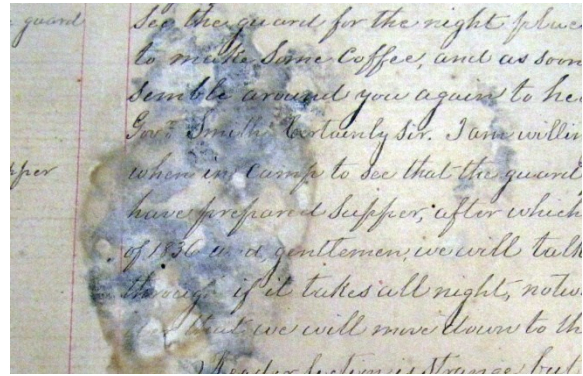 guard
see the guard for the night
to make some coffee, and as soon
semble around you again to
Govr. Smith. Certainly sir. I am
when in camp to see that the guard
have prepared supper, after which
of 1836 and, gentlemen, we will talk
through if it takes all night,
that we will move down to
is strange but